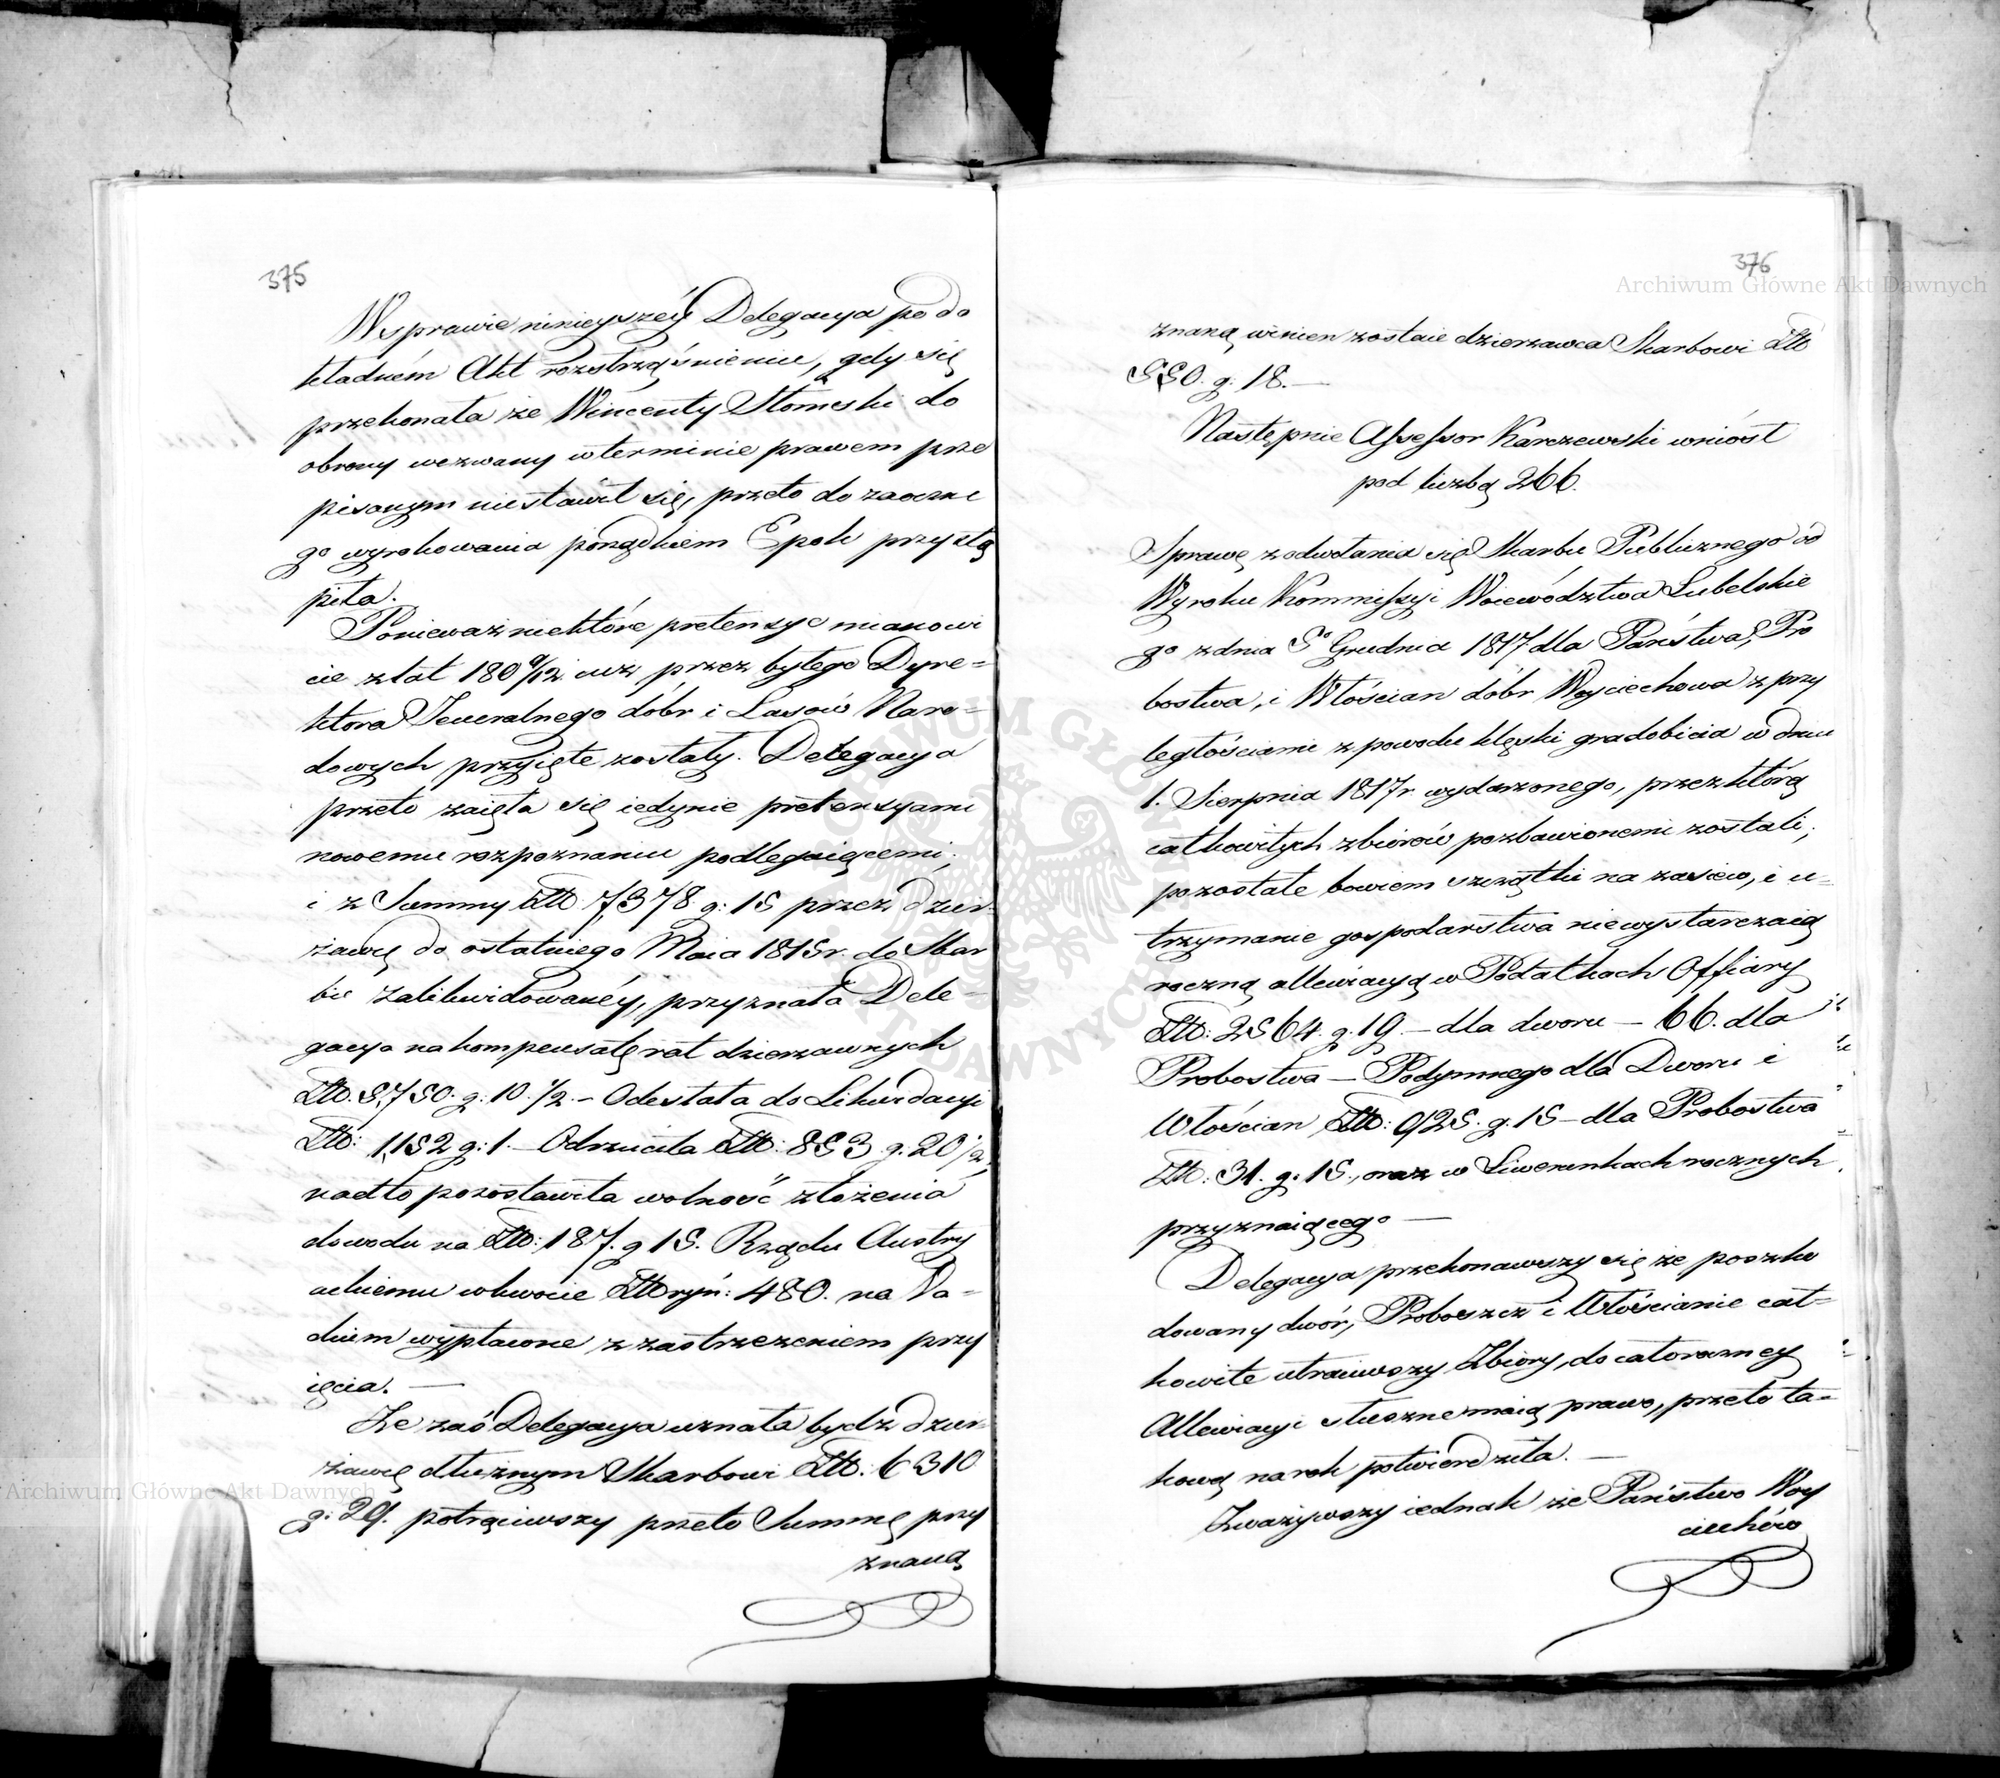 375
W sprawie ninieyszéy Delegacya po do
kładném Akt rozstrząśnieniu, gdy się
przekonała że Wincenty Słomski do
obrony wezwany w terminie prawem prze
pisanym niestawił się, przeto do zaoczne
go wyrokowania porządkiem Epok przystą
piła.
Ponieważ niektóre pretensye mianowi
cie z lat 1809/12 iuż przez byłego Dyre=
ktora Jeneralnego dóbr i Lasów Naro=
dowych przyięte zostały. Delegacya
przeto zaięła się iedynie pretensyami
nowemu rozpoznaniu podlegaiącemi;
i z Summy Złł 7,378 g: 15 przez dzier
żawcę do ostatniego Maia 1815r. do Skar
bu zalikwidowanéy, przyznała Dele=
gacya na kompensatę rat dzierżawnych
Złł. 5,750. g. 10 1/2. – Odesłała do Likwidacyi
Złł: 1,152 g: 1. – Odrzuciła Złł: 853 g. 20 1/2,
nadto pozostawiła wolność złożenia
dowodu na Złł: 187. g 15. Rządu Austry
ackiemu w kwocie Złł ryń: 480. na Va=
dium wypłacone z zastrzeżeniem przy
ięcia. —
Że zaś Delegacya uznała bydź dzier=
żawcę dłużnym Skarbowi Złł: 6310
g: 29. potrąciwszy przeto Summę przy
znaną
376
znaną winien zostaie dzierżawca Skarbowi Złł
550. g: 18. —
Następnie Assessor Karczewski wniósł
pod liczbą 266.
Sprawę z odwołania się Skarbu Publicznego od
Wyroku Kommissyi Woiewództwa Lubelskie
go z dnia 5º Grudnia 1817 dla Państwa, Pro
bostwa, i Włościan dóbr Woyciechowa z przy
ległościami z powodu klęski gradobicia w dniu
1. Sierpnia 1817r wydarzonego, przez którą
całkowitych zbiorów pozbawionemi zostali,
pozostałe bowiem szczątki na zasiew, i u=
trzymanie gospodarstwa niewystarczaią
roczną allewiacyą w Podatkach Offiary
Złł: 2564. g. 19. – dla dworu – 66. dla
Probostwa – Podymnego dla Dworu i
Włościan Złł: 925. g. 15 – dla Probostwa
Złł: 31. g. 15., oraz w Liwerunkach rocznych
przyznaiącego —
Delegacya przekonawszy się że poszko
dowany dwór, Proboszcz i Włościanie cał=
kowite utraciwszy Zbiory, do całoroczney
Allewiacyi słuszne maią prawo, przeto ta=
kową na rok potwierdziła. —
Zważywszy iednak że Państwo Woy
ciechów
Archiwum Główne Akt Dawnych
Archiwum Główne Akt Dawnych
ARCHIWUM GŁÓWNE AKT DAWNYCH